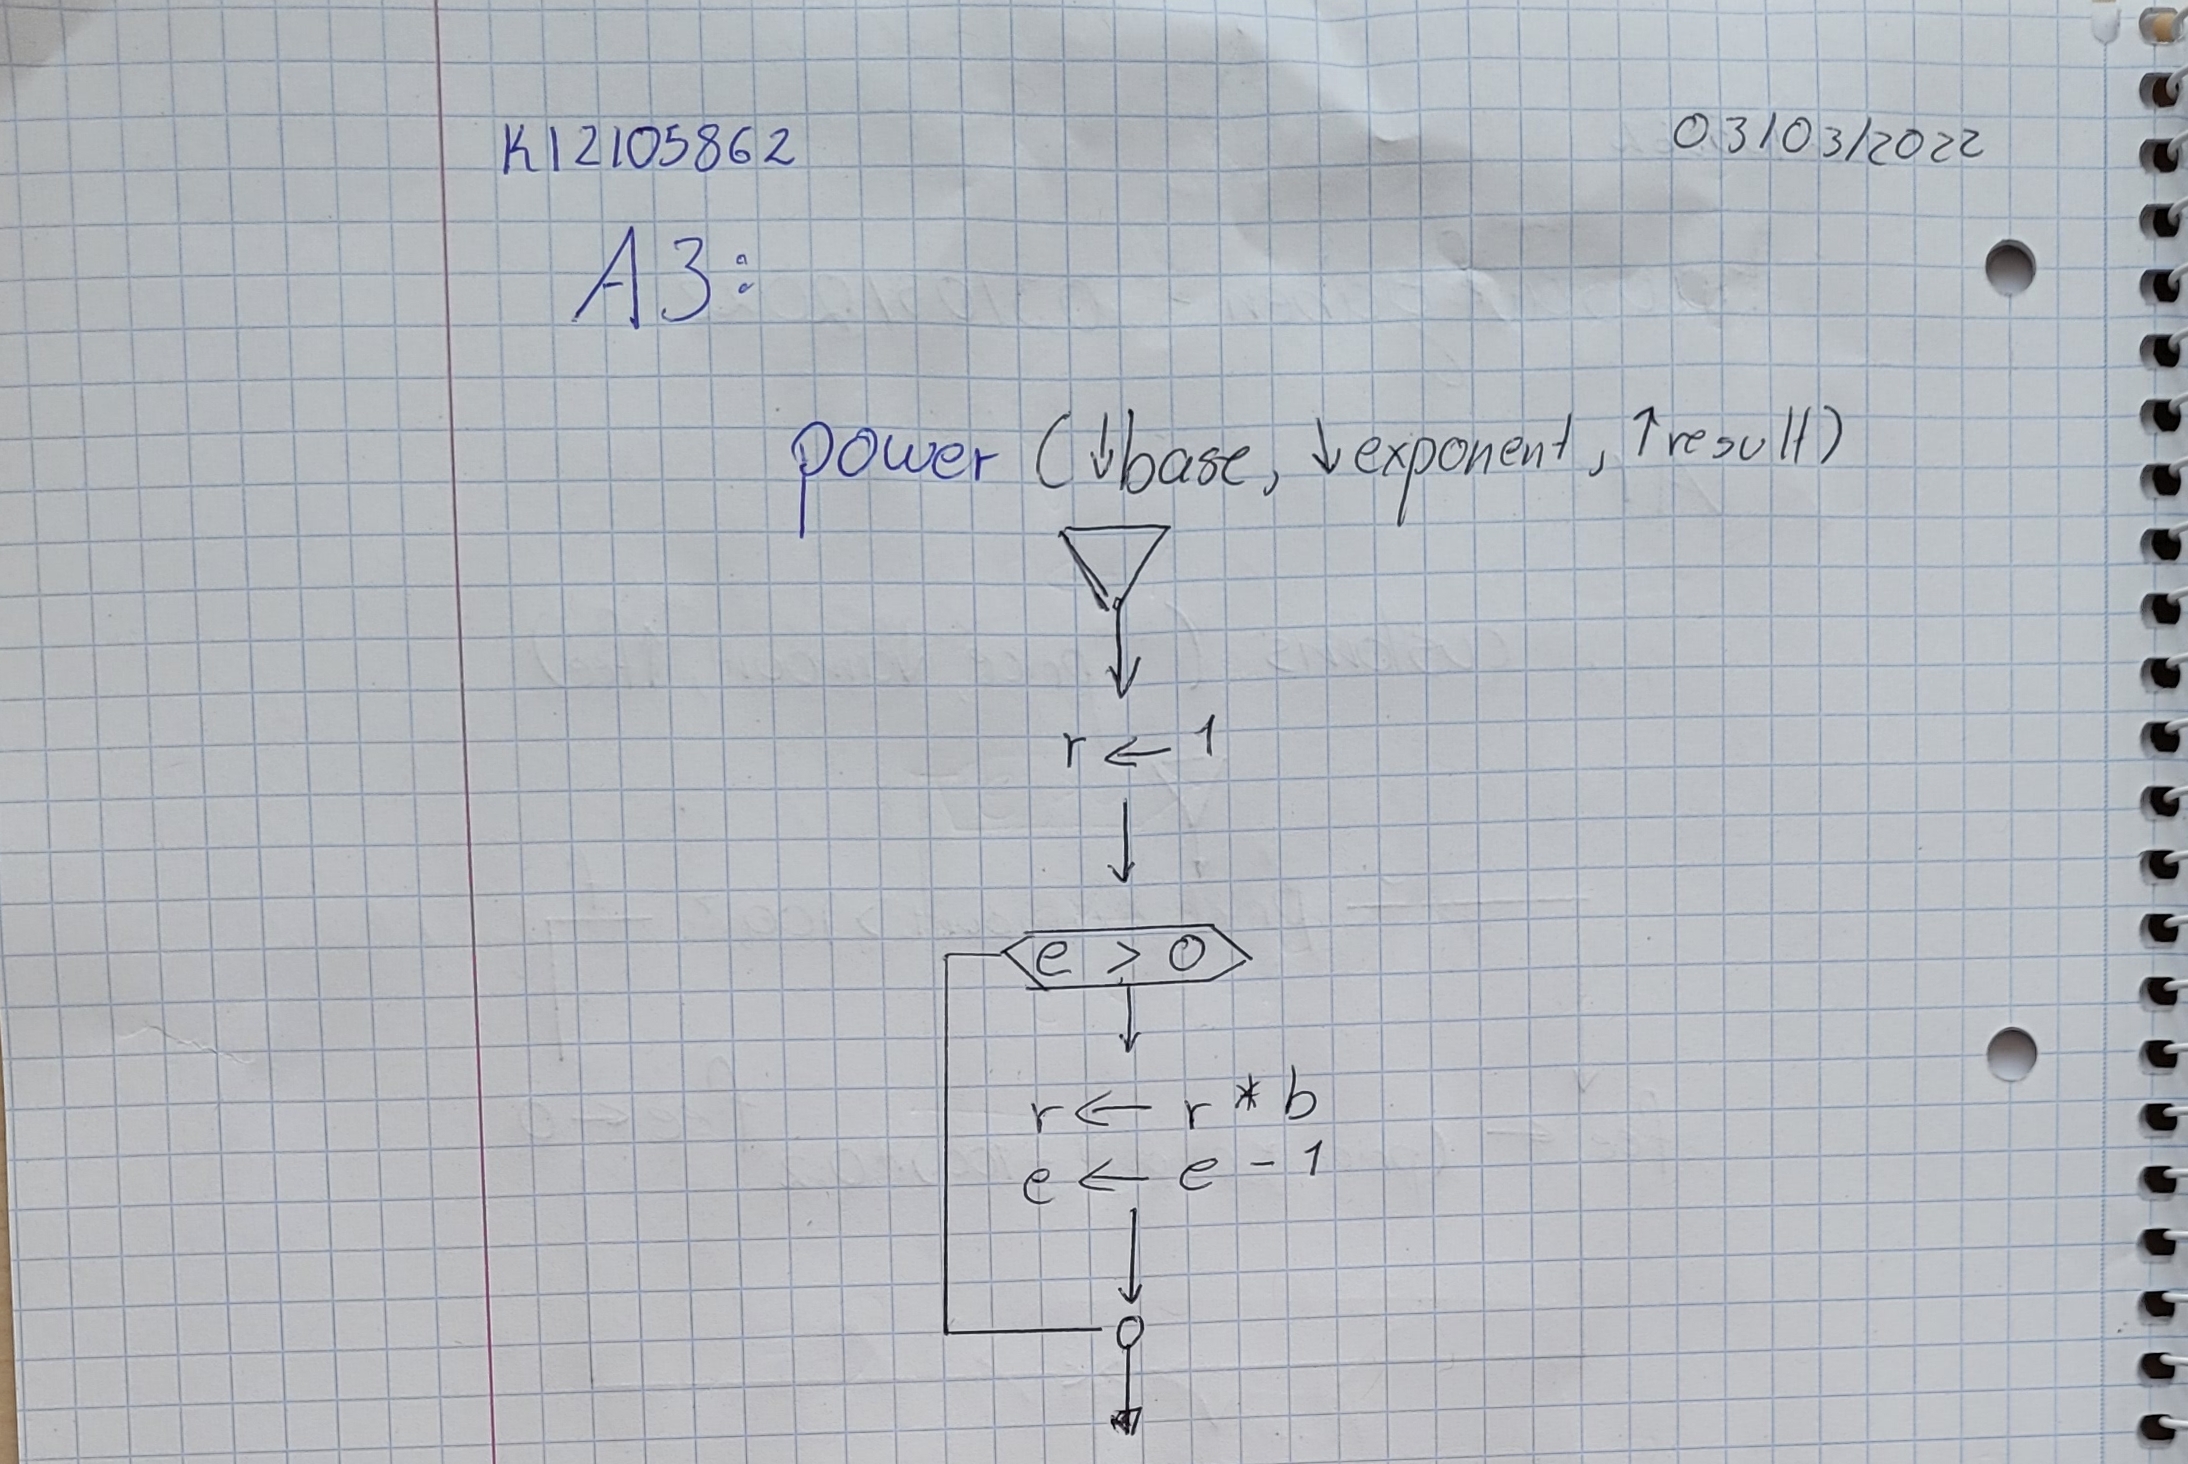 K12105862 03/03/2022
A3:
power (↓base, ↓exponent, ↑result)
r ← 1
e > 0
r ← r * b
e ← e - 1